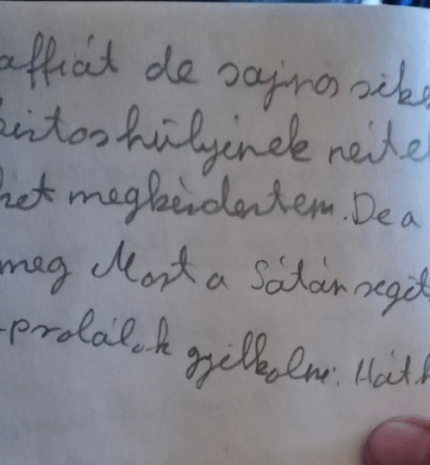 affiát de sajnos sike
biztos hülyének nézte
het megkérdeztem. De a
meg Most a Sátán segít
próbálok gyilkolni. Hát h